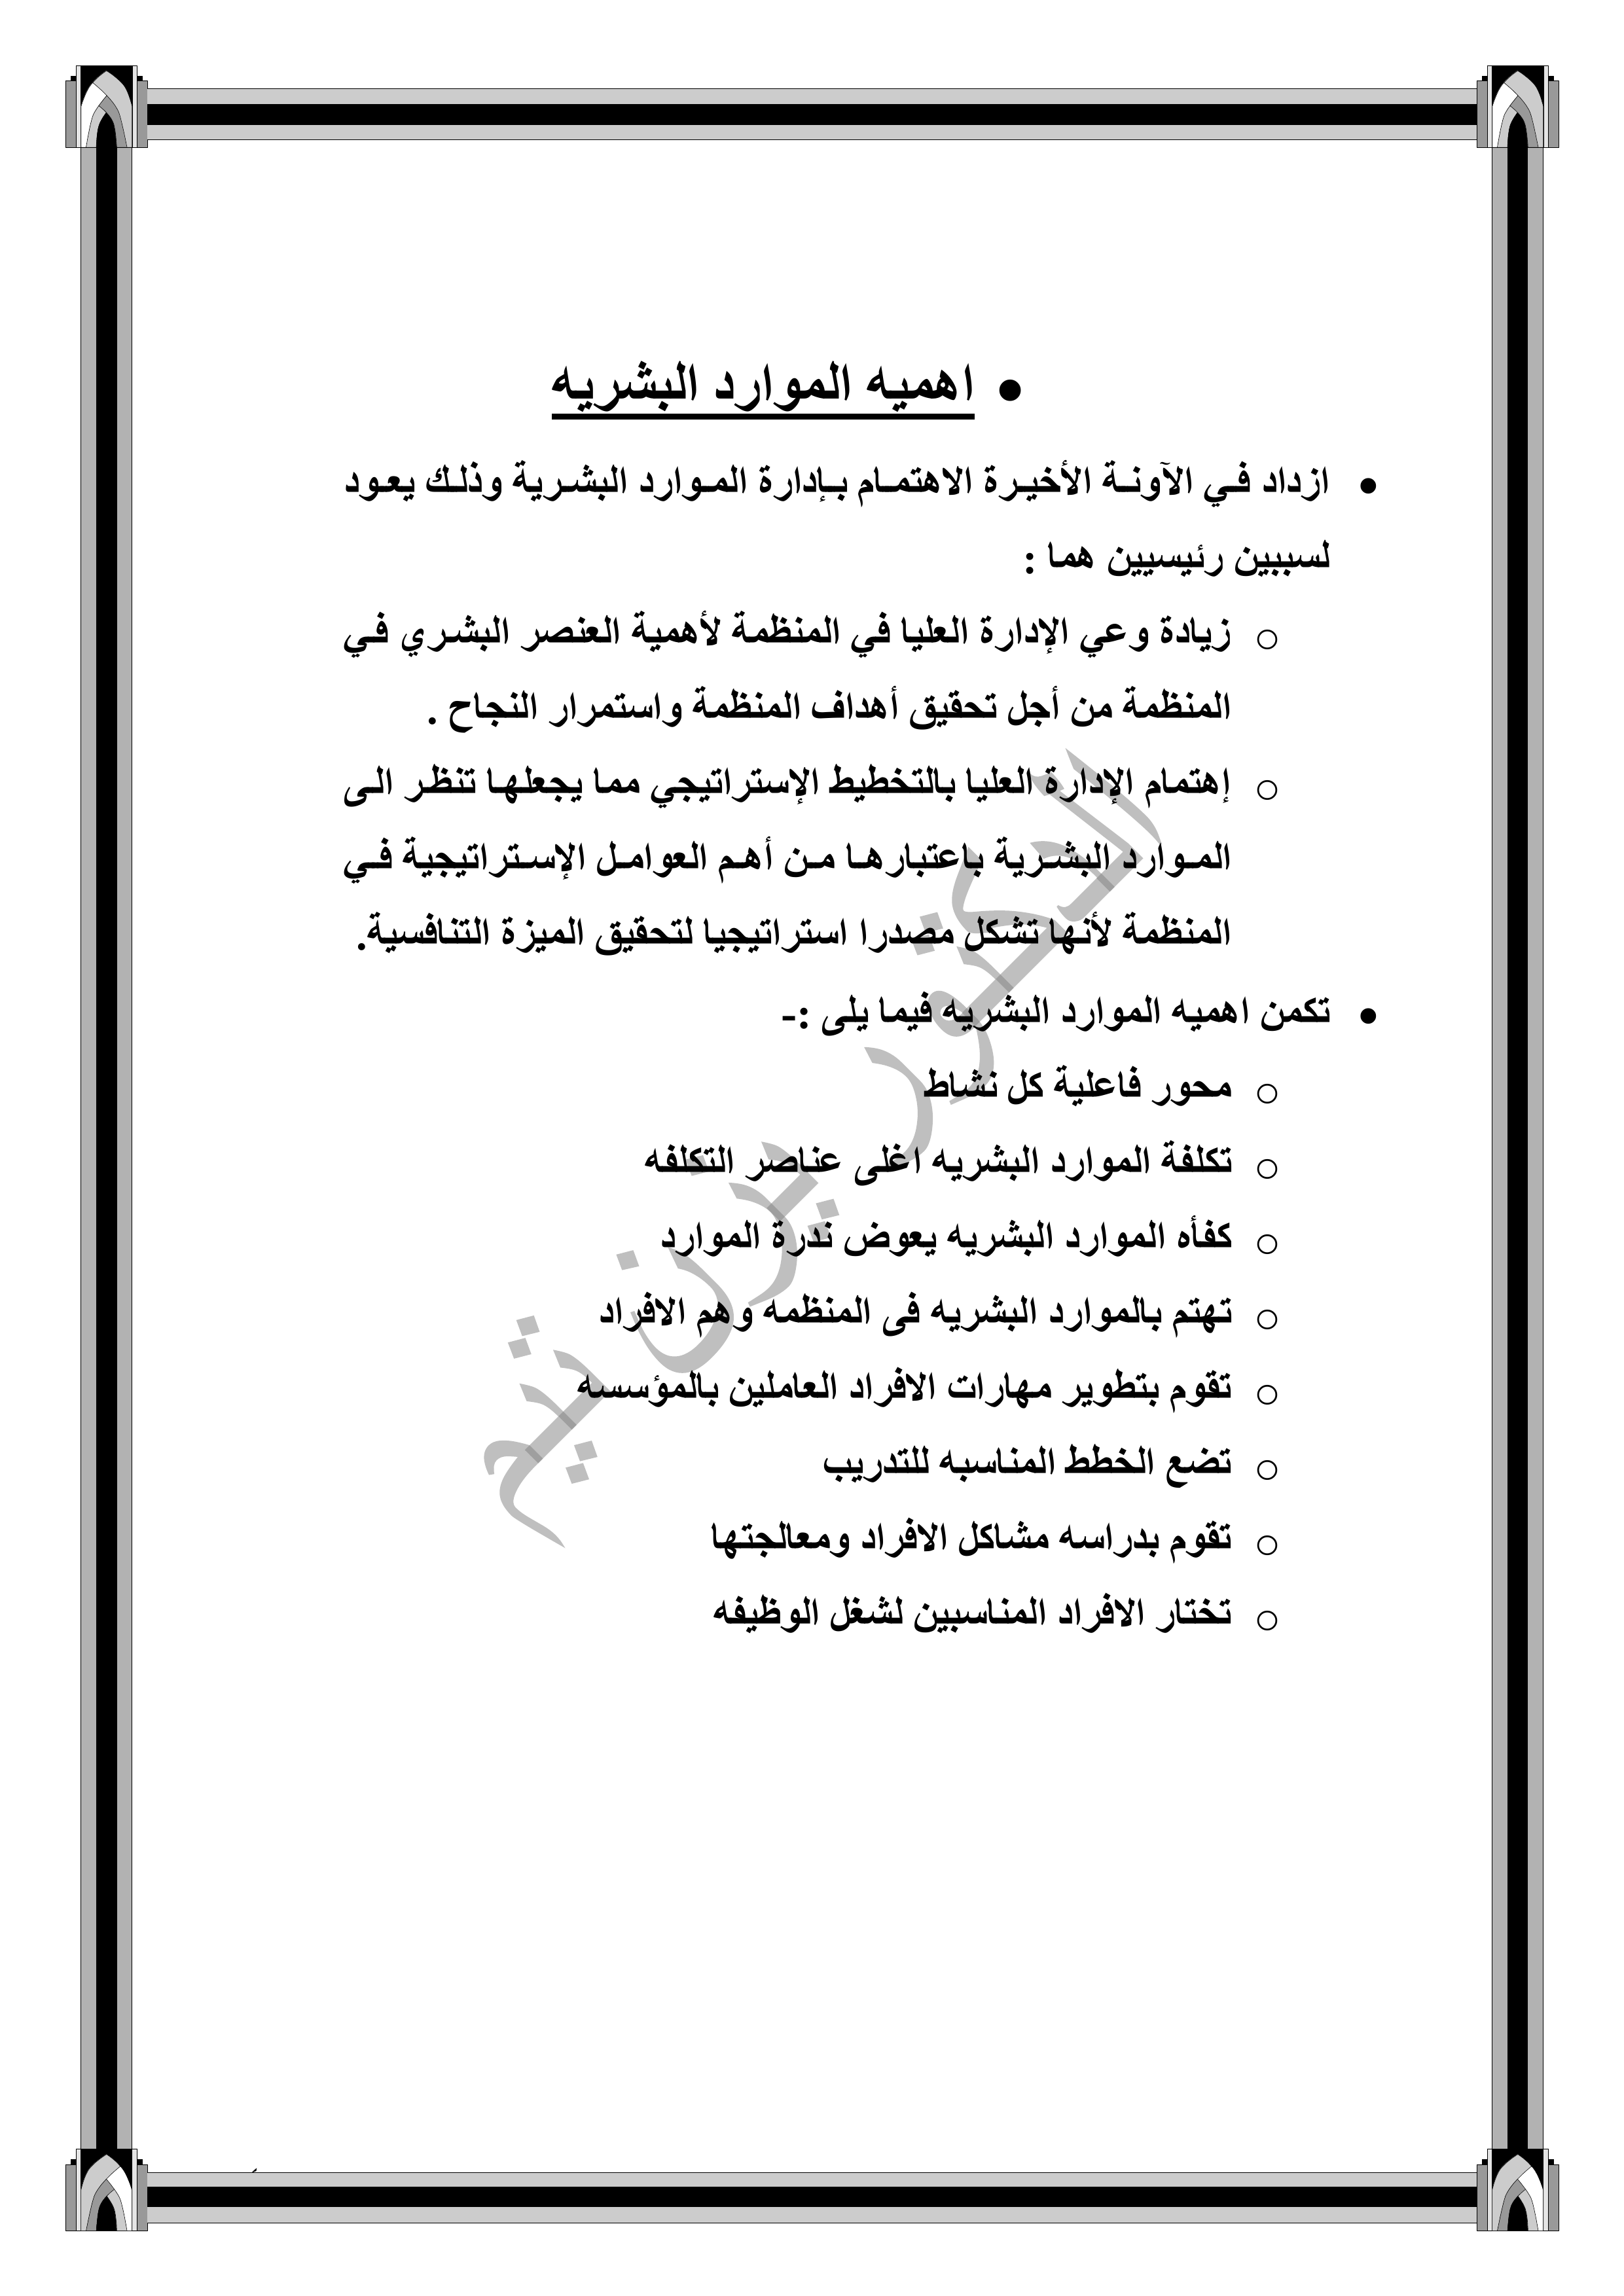 • اهميه الموارد البشريه
• ازداد في الآونة الأخيرة الاهتمام بإدارة الموارد البشرية وذلك يعود
لسببين رئيسيين هما :
○ زيادة وعي الإدارة العليا في المنظمة لأهمية العنصر البشري في
المنظمة من أجل تحقيق أهداف المنظمة واستمرار النجاح .
○ إهتمام الإدارة العليا بالتخطيط الإستراتيجي مما يجعلها تنظر الى
الموارد البشرية باعتبارها من أهم العوامل الإستراتيجية في
المنظمة لأنها تشكل مصدرا استراتيجيا لتحقيق الميزة التنافسية.
• تكمن اهميه الموارد البشريه فيما يلى :-
○ محور فاعلية كل نشاط
○ تكلفة الموارد البشريه اغلى عناصر التكلفه
○ كفأه الموارد البشريه يعوض ندرة الموارد
○ تهتم بالموارد البشريه فى المنظمه وهم الافراد
○ تقوم بتطوير مهارات الافراد العاملين بالمؤسسه
○ تضع الخطط المناسبه للتدريب
○ تقوم بدراسه مشاكل الافراد ومعالجتها
○ تختار الافراد المناسبين لشغل الوظيفه
الدكتور يزن تيم